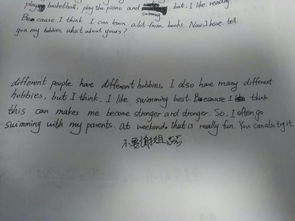 play basketball, play the piano and swimming but. I like reading.
Because I think I can learn a lot from books. Now, I have tell
you my hobbies, what about yours?
different people have different hobbies. I also have many different
hobbies, but I think, I like swimming best. Because I think
this can makes me become stronger and stronger. So, I often go
swimming with my parents. at weekends, that is really fun. You can also try it.
不要